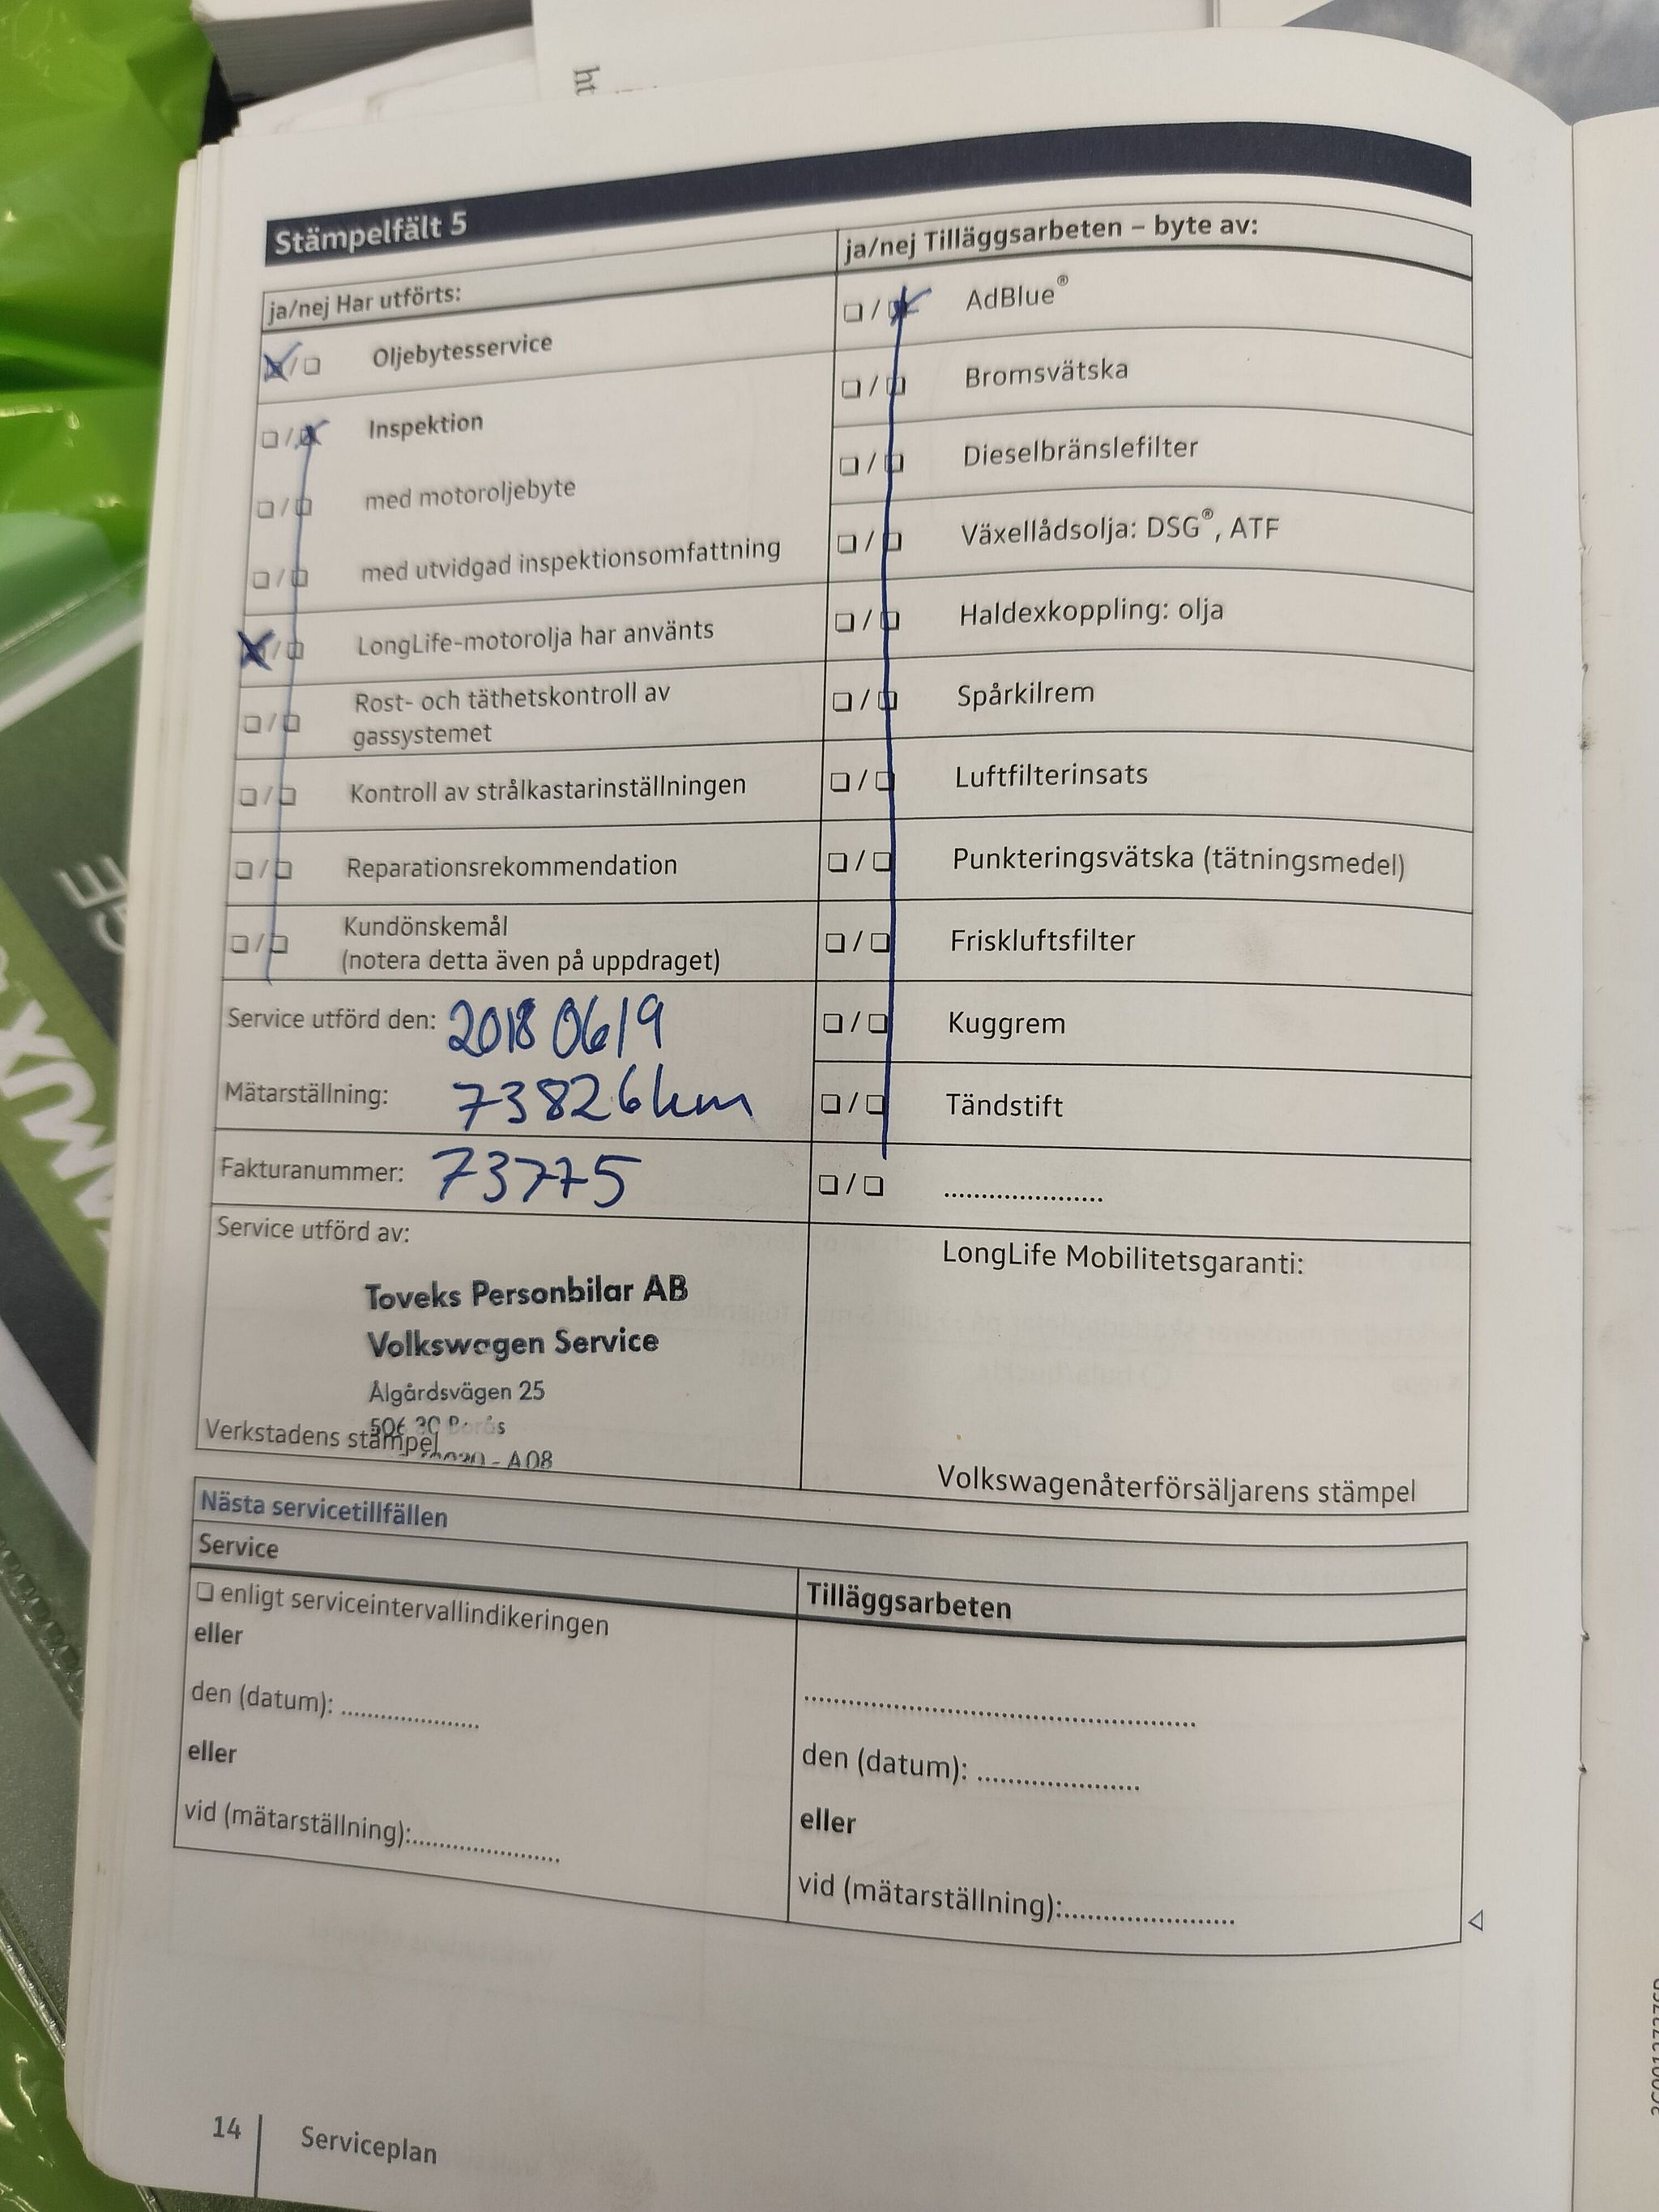 ht
Stämpelfält 5
ja/nej Har utförts:
Oljebytesservice
Inspektion
med motoroljebyte
med utvidgad inspektionsomfattning
LongLife-motorolja har använts
Rost- och täthetskontroll av
gassystemet
Kontroll av strålkastarinställningen
Reparationsrekommendation
Kundönskemål
(notera detta även på uppdraget)
Service utförd den: 2018 06 19
Mätarställning: 73826 km
Fakturanummer: 73775
Service utförd av:
Toveks Personbilar AB
Volkswagen Service
Ålgårdsvägen 25
506 30 Borås
- A08
Verkstadens stämpel
ja/nej Tilläggsarbeten – byte av:
AdBlue®
Bromsvätska
Dieselbränslefilter
Växellådsolja: DSG®, ATF
Haldexkoppling: olja
Spårkilrem
Luftfilterinsats
Punkteringsvätska (tätningsmedel)
Friskluftsfilter
Kuggrem
Tändstift
.....................
LongLife Mobilitetsgaranti:
Volkswagenåterförsäljarens stämpel
Nästa servicetillfällen
Service
enligt serviceintervallindikeringen
eller
den (datum): .....................
eller
vid (mätarställning):......................
Tilläggsarbeten
.....................................................
den (datum): ......................
eller
vid (mätarställning):.......................
14
Serviceplan